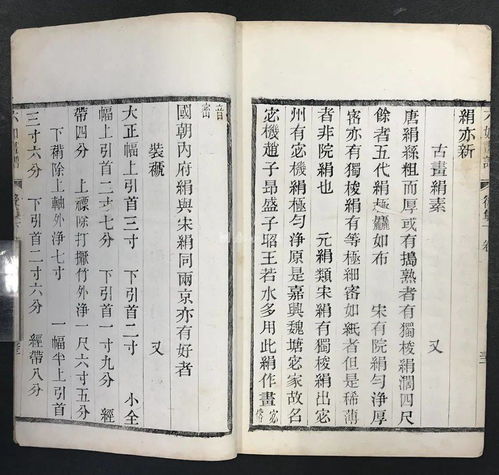 絹亦新
古畫絹素 又
唐絹絲粗而厚或有搗熟者有獨梭絹濶四尺
餘者五代絹極麤如布 宋有院絹勻淨厚
密亦有獨梭絹有等極細密如紙者但是稀薄
者非院絹也 元絹類宋絹有獨梭絹出宓
州有宓機絹極勻淨原是嘉興魏塘宓家故名
宓機趙子昂盛子昭王若水多用此絹作畫宓
音密
國朝內府絹與宋絹同兩京亦有好者
裝褫 又
大正幅上引首三寸 下引首二寸 小全
幅上引首二寸七分 下引首一寸九分 經
帶四分 上褾除打擫竹外淨一尺六寸五分
下褾除上軸外淨七寸 一幅半上引首
三寸六分 下引首二寸六分 經帶八分